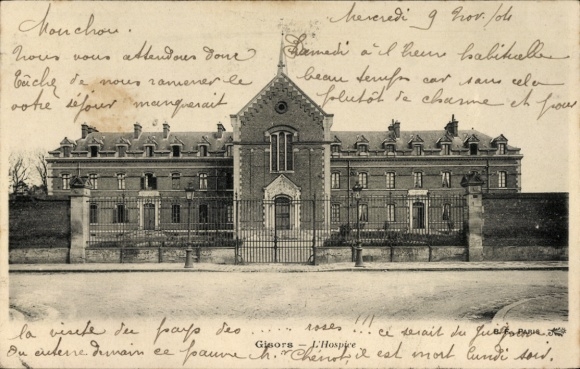 Mercredi 9 Nov. /04
Monchou.
Nous vous attendons donc Samedi à l'heure habituelle
Tâchez de nous ramener le beau temps car sans cela
votre séjour manquerait plutôt de charme et pour
la visite du pays des ..... roses !!! ce serait du
Gisors — L'Hospice
B.F. PARIS
On enterre demain ce pauvre Mr Chénot, il est mort lundi soir.